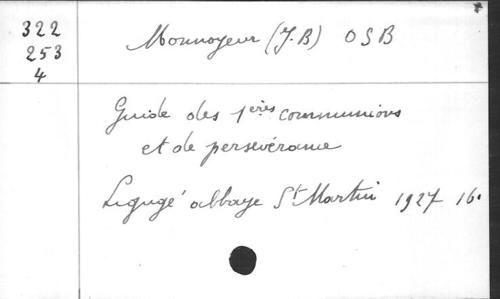 322
253
4
Monnoyeur (J.B) OSB
Guide des 1ères communions
et de persévérance
Ligugé abbaye St Martin 1927 16.